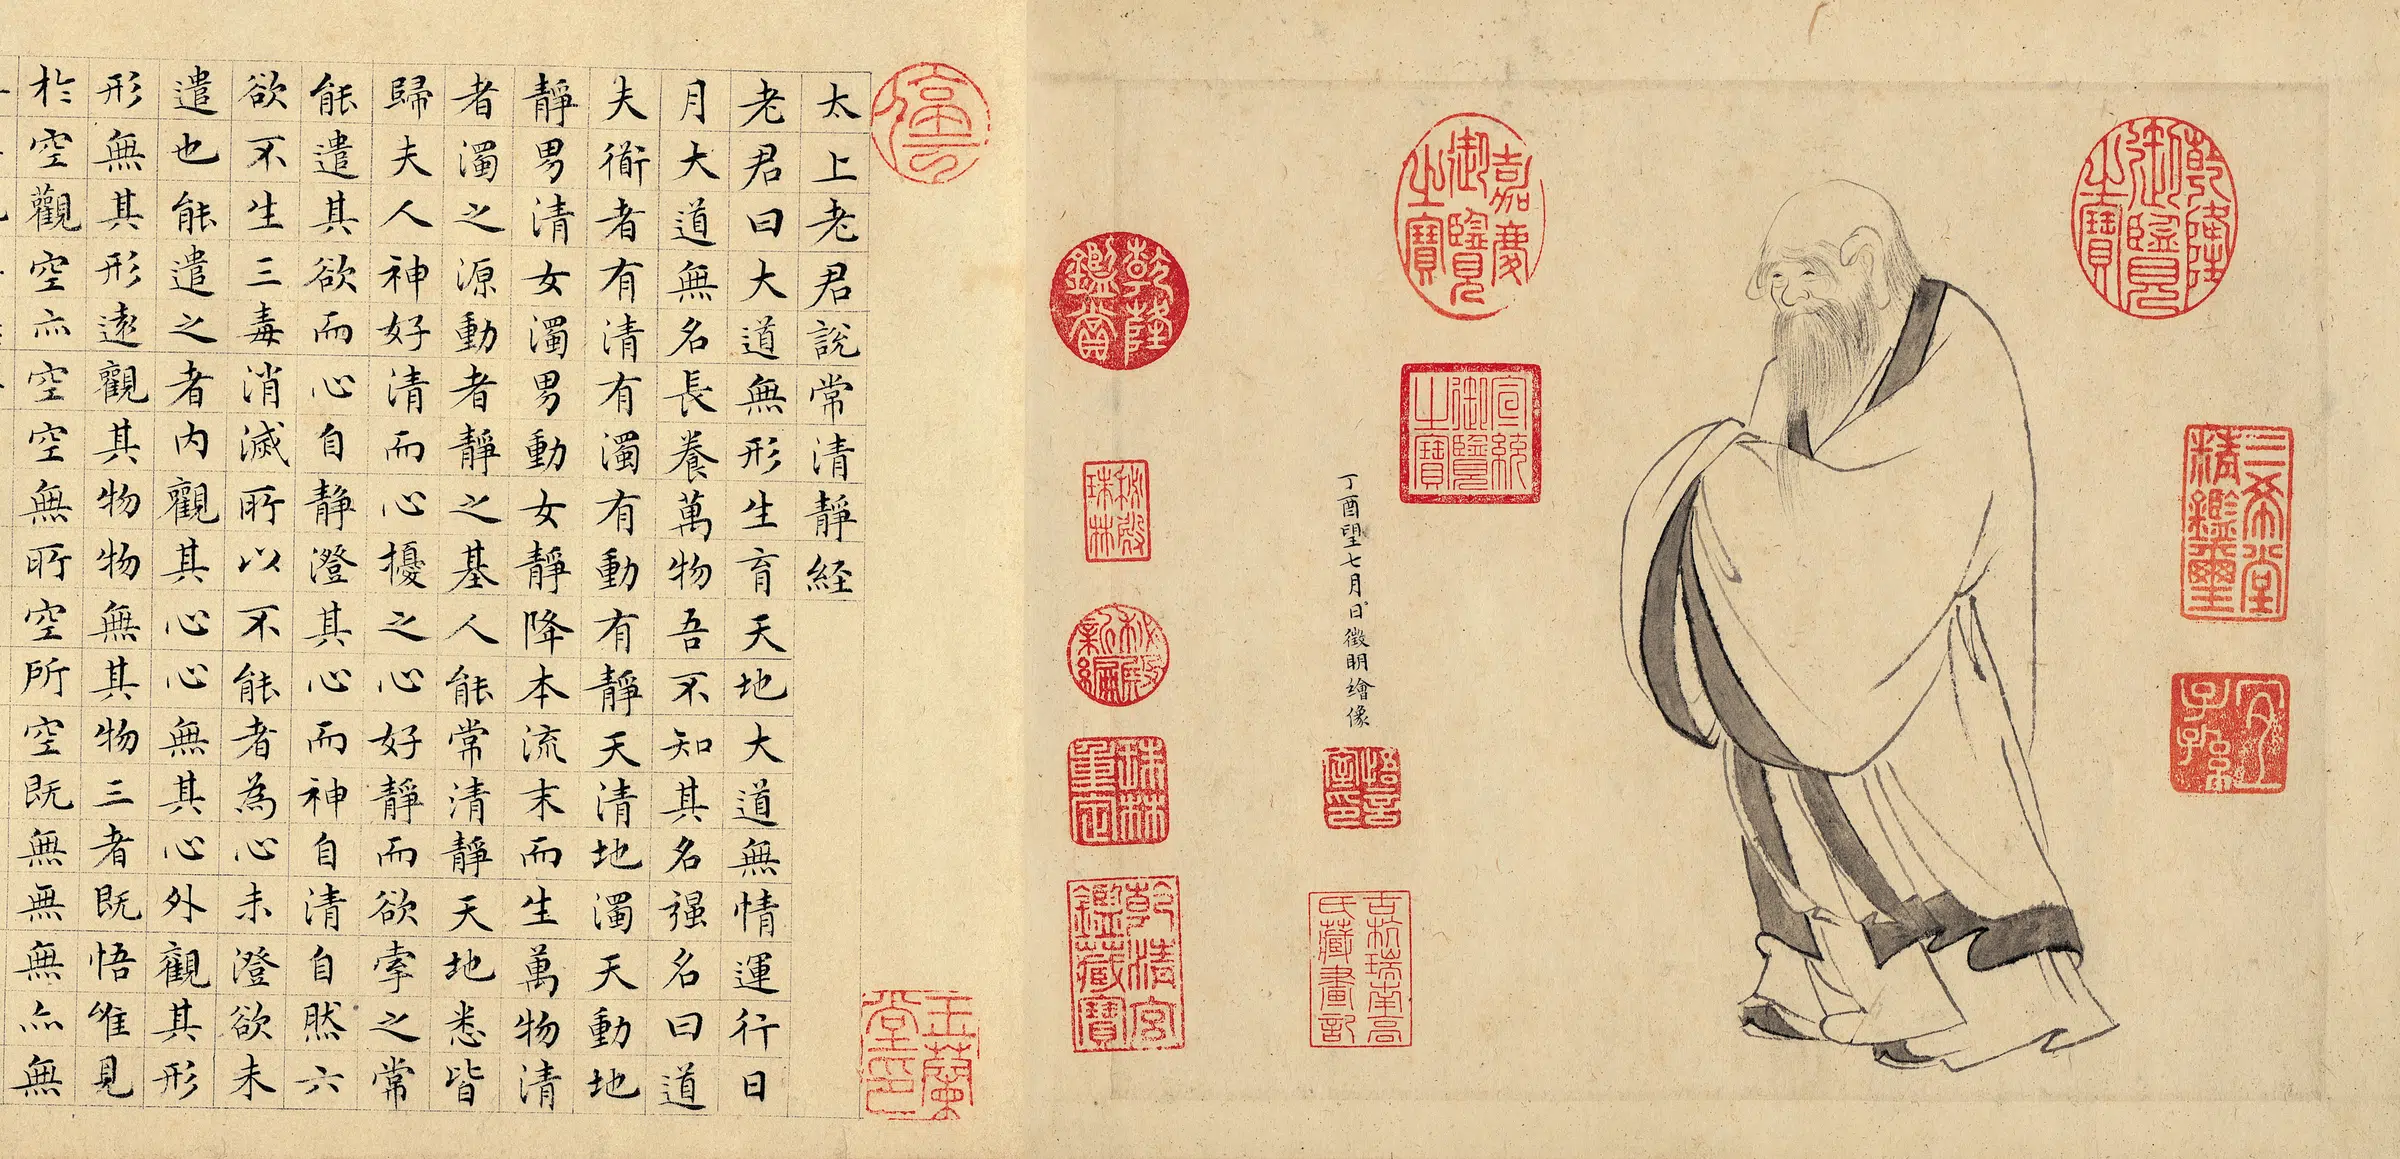 乾隆御覽之寶
三希堂精鑑璽
宜子孫
嘉慶御覽之寶
宣統御覽之寶
丁酉望七月日徵明繪像
悟言室印
古杭瑞南高氏藏畫記
乾隆鑑賞
秘殿珠林
秘殿新編
珠林重定
乾清宮鑑藏寶
停雲
玉蘭堂印
太上老君說常清靜経
老君曰大道無形生育天地大道無情運行日
月大道無名長養萬物吾不知其名强名曰道
夫衜者有清有濁有動有靜天清地濁天動地
靜男清女濁男動女靜降本流末而生萬物清
者濁之源動者靜之基人能常清靜天地悉皆
歸夫人神好清而心擾之心好靜而欲牽之常
能遣其欲而心自静澄其心而神自清自然六
欲不生三毒消滅所以不能者為心未澄欲未
遣也能遣之者内觀其心心無其心外觀其形
形無其形遠觀其物物無其物三者既悟唯見
於空觀空亦空空無所空所空既無無無亦無